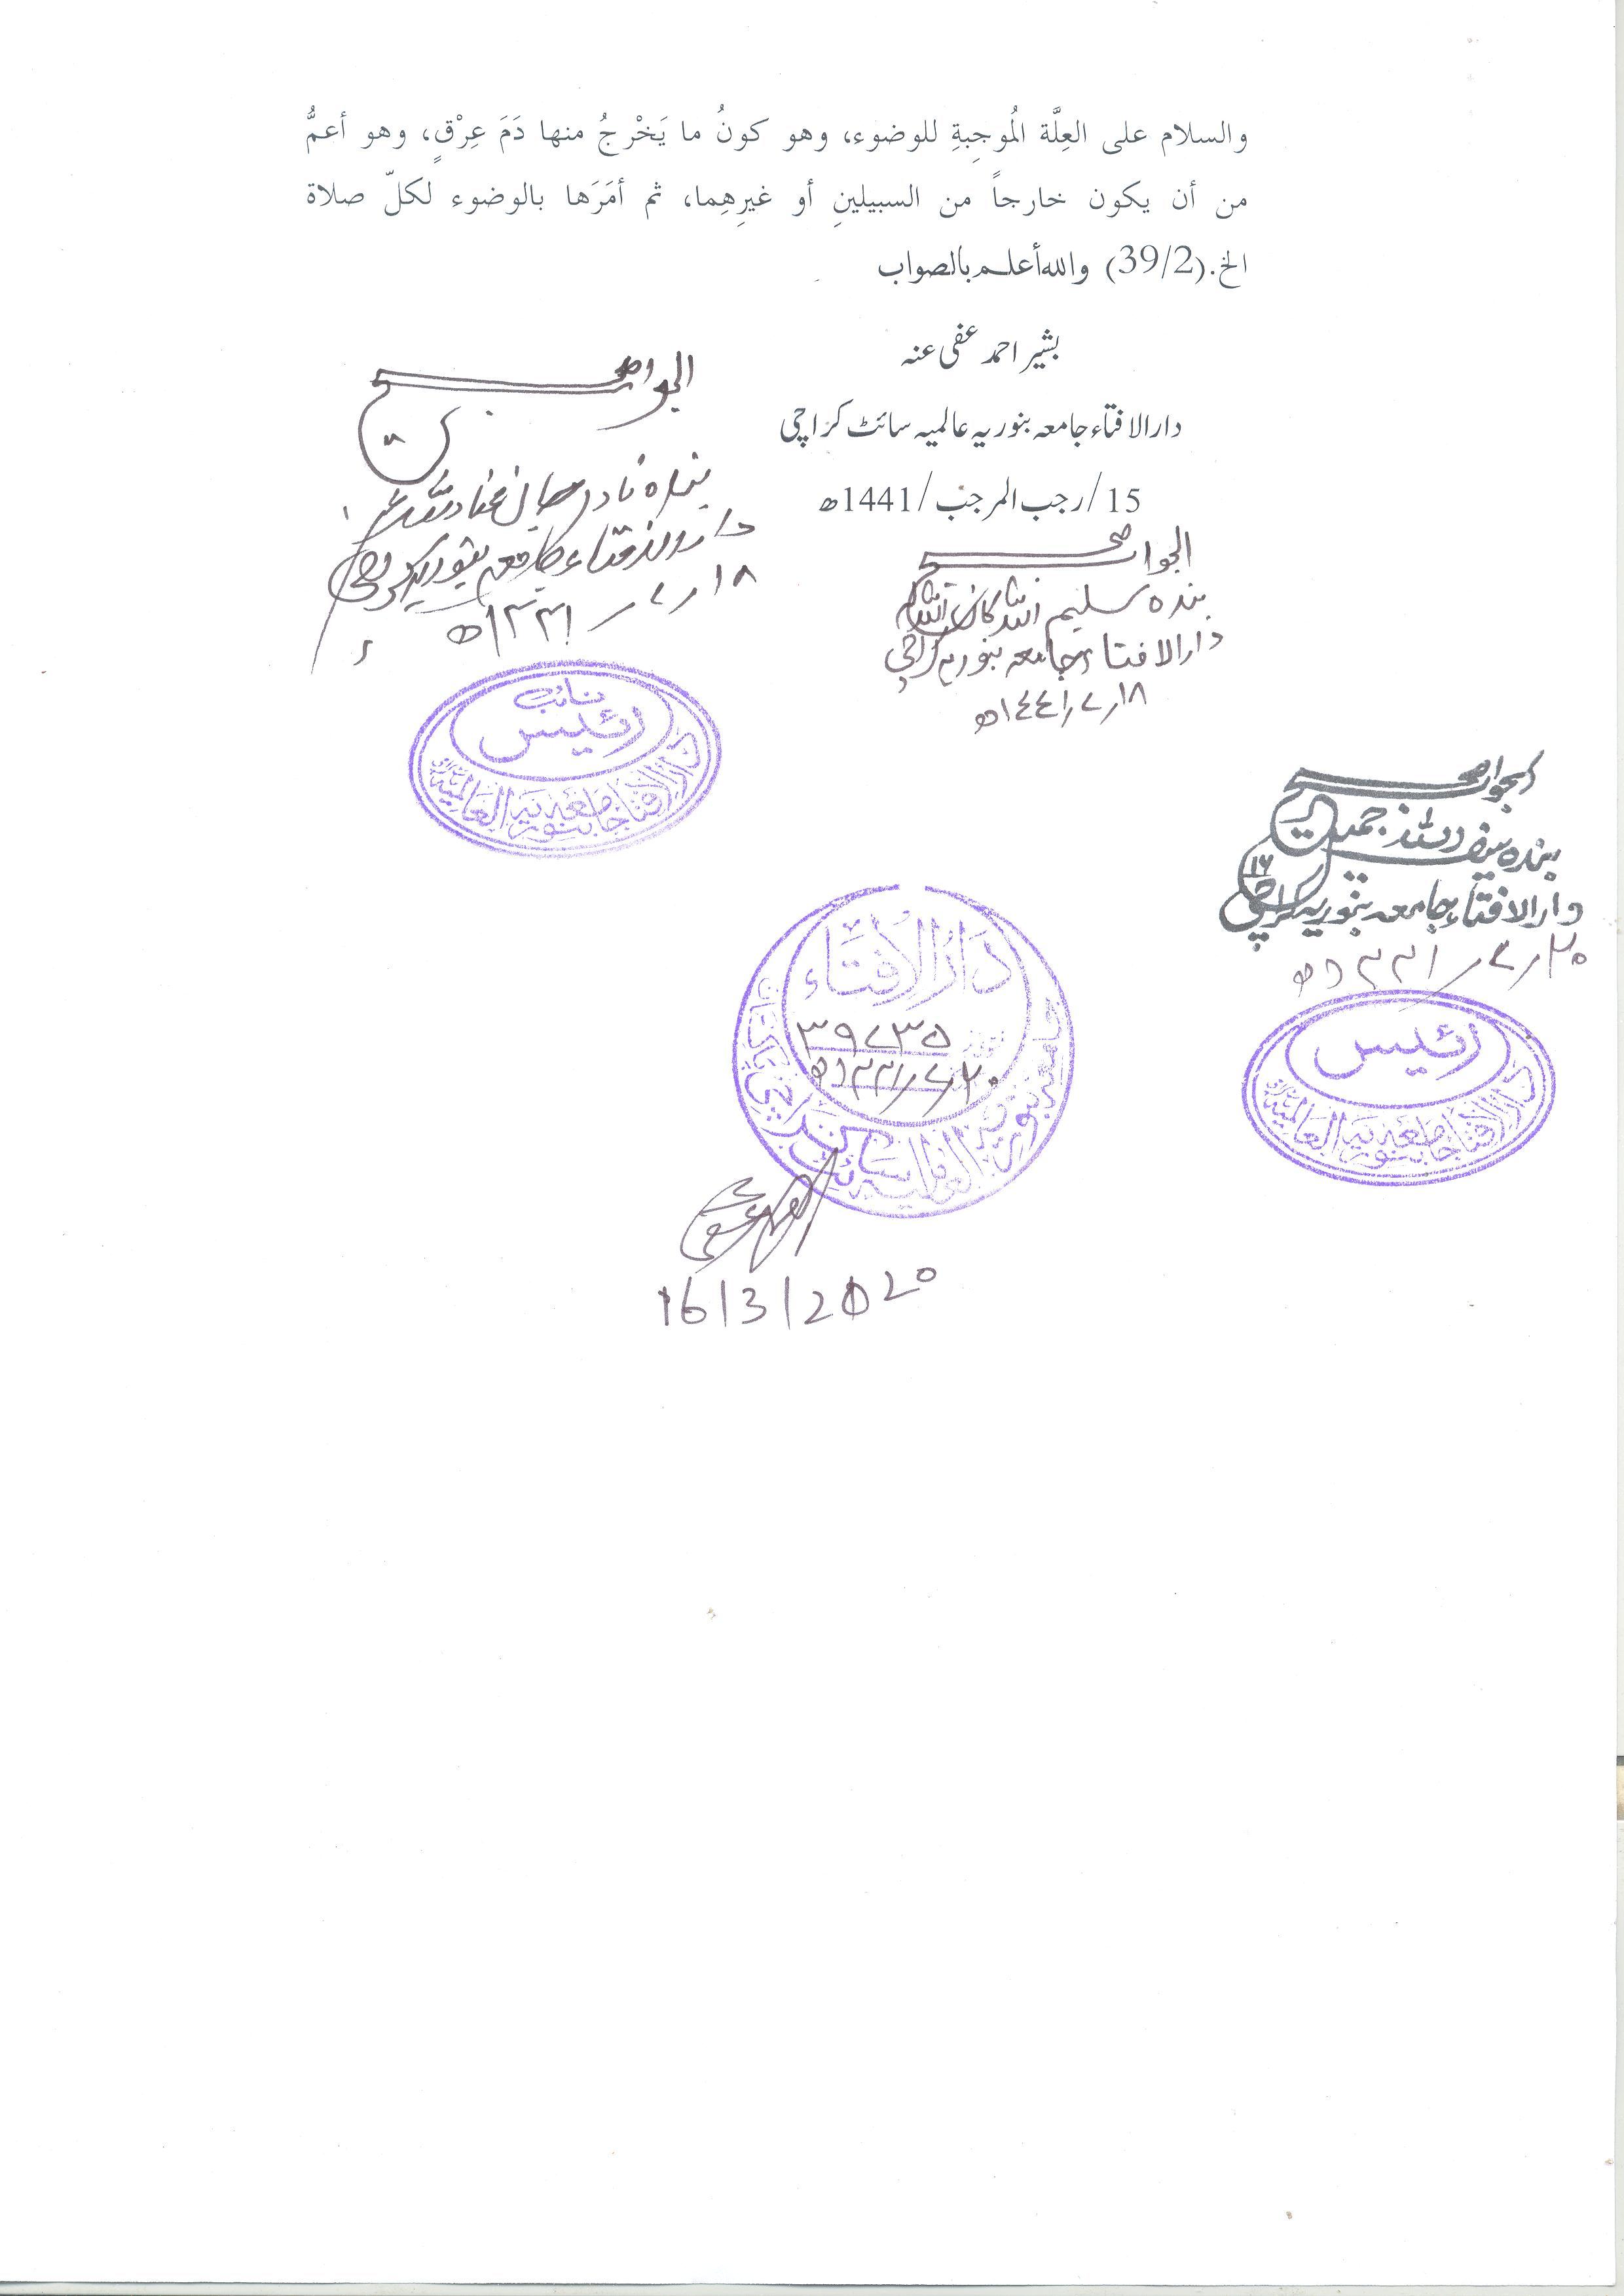 والسلام على العِلَّة المُوجِبةِ للوضوء، وهو كونُ ما يَخْرجُ منها دَمَ عِرْقٍ، وهو أعمُّ
من أن يكون خارجاً من السبيلينِ أو غيرِهِما، ثم أمَرَها بالوضوء لكلّ صلاة
الخ.(39/2) والله أعلم بالصواب
بشیر احمد عفی عنہ
دار الافتاء جامعہ بنوریہ عالمیہ سائٹ کراچی
15/رجب المرجب/1441ھ
الجواب صحیح
بندہ نادر جان
دار الافتاء جامعہ بنوریہ کراچی
۱۸ / ۷ / ۱۴۴۱ھ
نائب
رئیس
دار الافتاء جامعہ بنوریہ العالمیہ
الجواب صحیح
بندہ سلیم اللہ کان اللہ لہ
دار الافتاء جامعہ بنوریہ کراچی
۱۸ / ۷ / ۱۴۴۱ھ
الجواب صحیح
بندہ سیف اللہ جمیل
دار الافتاء جامعہ بنوریہ کراچی
۲۰ / ۷ / ۱۴۴۱ھ
رئیس
دار الافتاء جامعہ بنوریہ العالمیہ
دَارُ الْاِفْتَاء
۳۹۷۳۵
۲۰ / ۷ / ۱۴۴۱ھ
جامعہ بنوریہ العالمیہ سائٹ کراچی پاکستان
16/3/2020